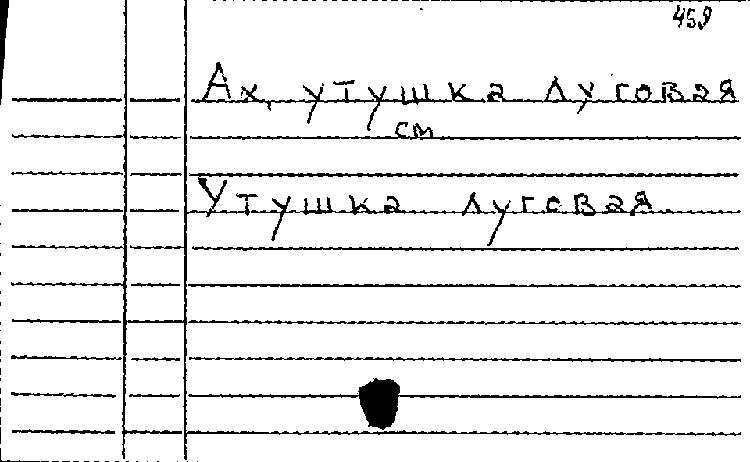 459
Ах, утушка луговая
см
Утушка луговая.